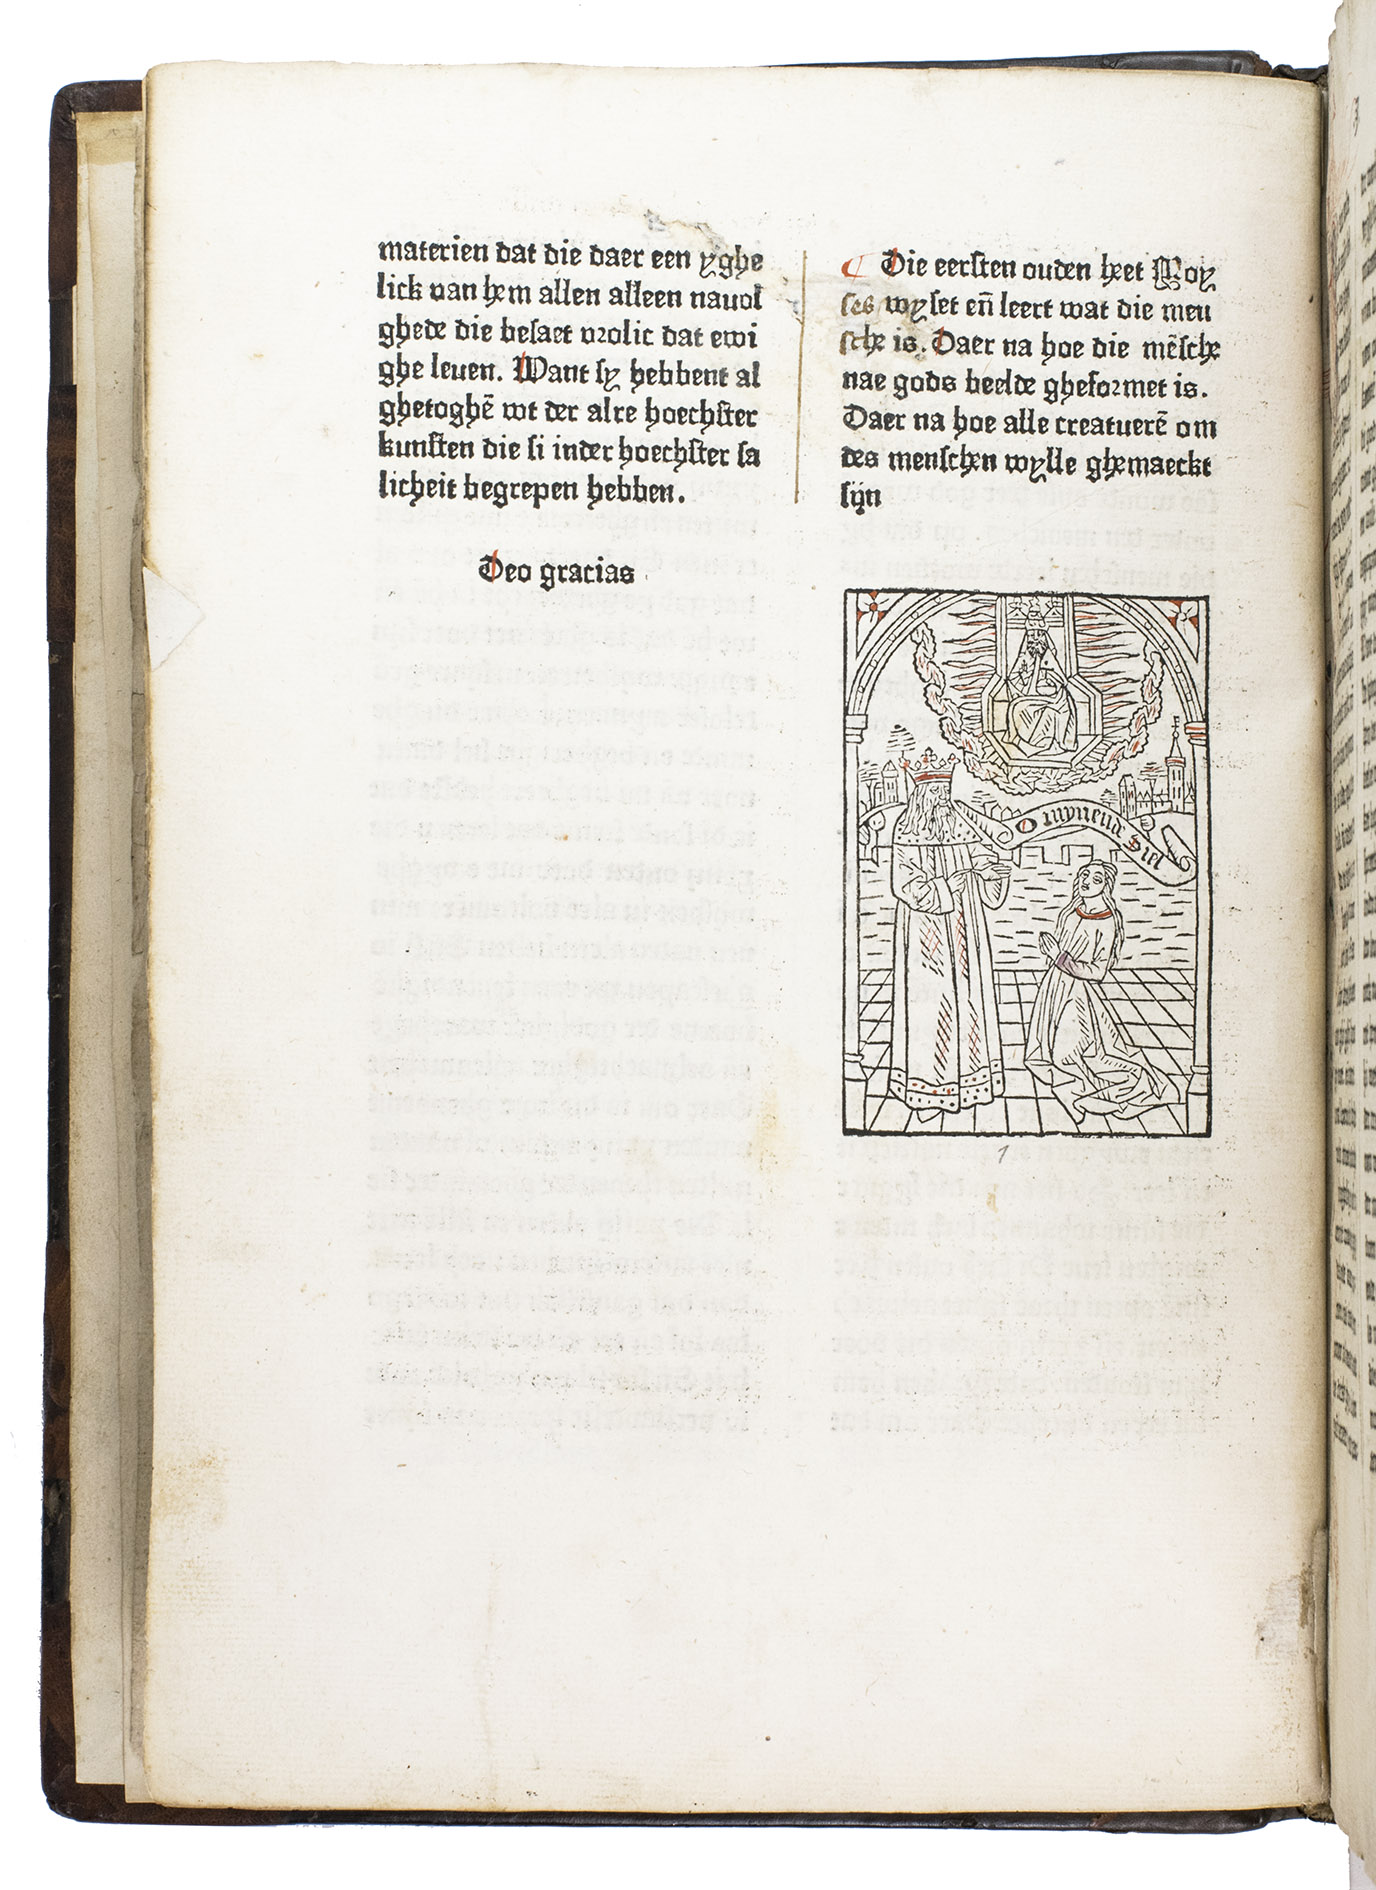 materien dat die daer een yghe
lick van hem allen alleen nauol
ghede die besaet vrolic dat ewi
ghe leuen. Want sy hebbent al
ghetoghē wt der alre hoechster
kunsten die si inder hoechster sa
licheit begrepen hebben.
Deo gracias
Die eersten ouden heet Moy
ses wyset en̄ leert wat die men
sche is. Daer na hoe die mēsche
nae gods beelde gheformet is.
Daer na hoe alle creatuerē om
des menschen wylle ghemaeckt
sijn
O mynende siel
1